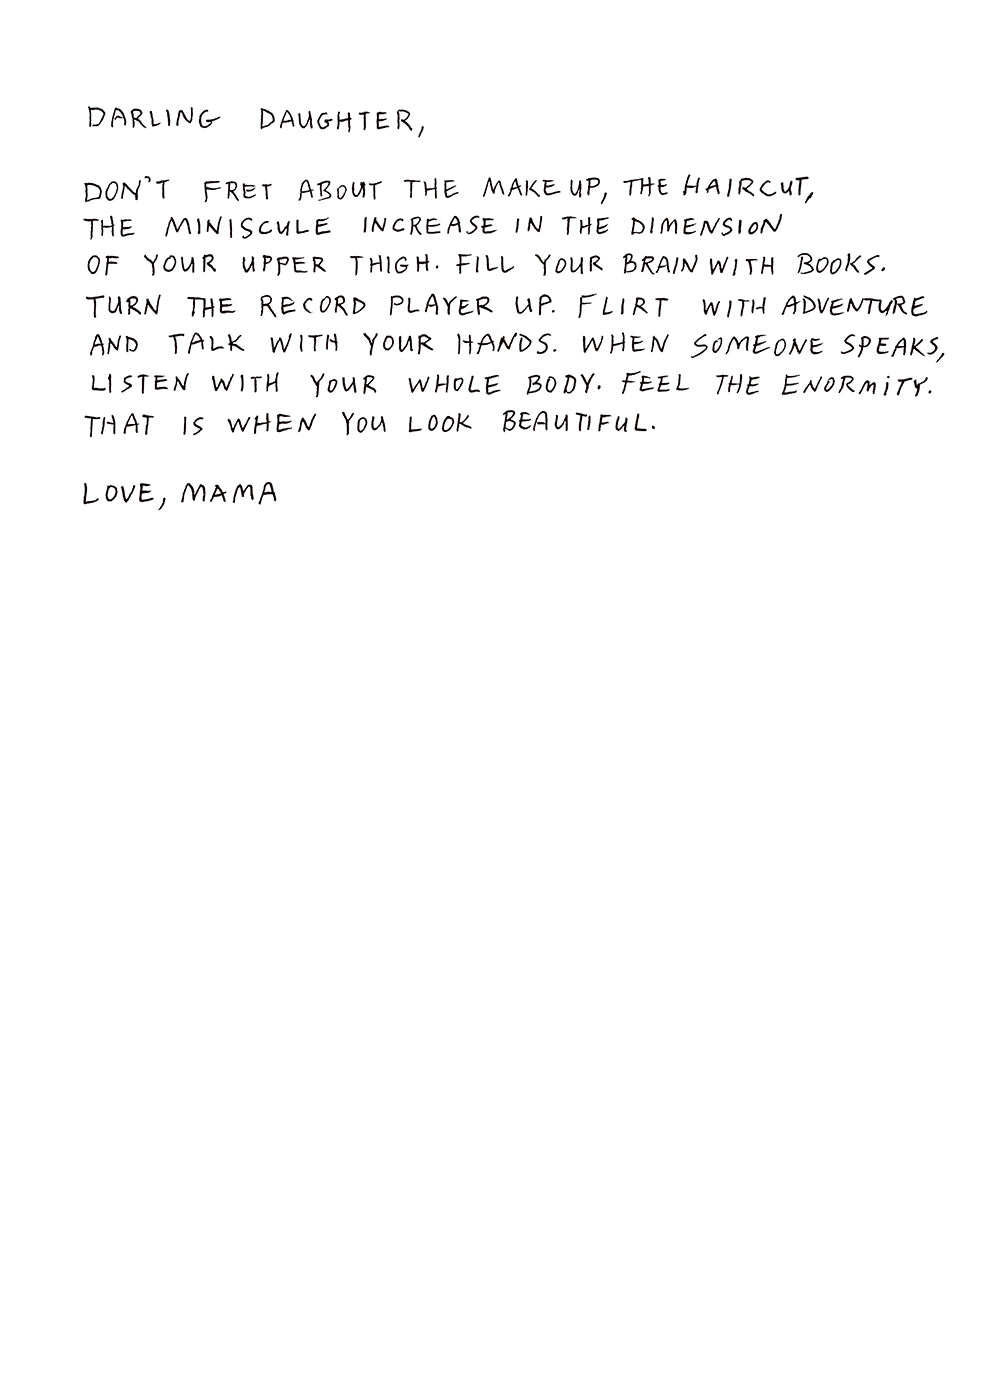 DARLING DAUGHTER,
DON'T FRET ABOUT THE MAKE UP, THE HAIRCUT,
THE MINISCULE INCREASE IN THE DIMENSION
OF YOUR UPPER THIGH. FILL YOUR BRAIN WITH BOOKS.
TURN THE RECORD PLAYER UP. FLIRT WITH ADVENTURE
AND TALK WITH YOUR HANDS. WHEN SOMEONE SPEAKS,
LISTEN WITH YOUR WHOLE BODY. FEEL THE ENORMITY.
THAT IS WHEN YOU LOOK BEAUTIFUL.
LOVE, MAMA